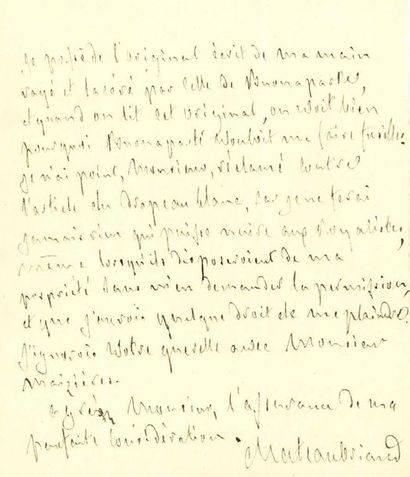 je possède l'original écrit de ma main
rayé et lacéré par celle de Buonaparte,
et quand on lit cet original, on voit bien
pourquoi Buonaparté vouloit me faire fusiller.
je n'ai point, Monsieur, réclamé contre
l'article du Drapeau blanc, car je ne ferai
jamais rien qui puisse nuire aux Royalistes,
même lorsqu'ils disposeroient de ma
propriété sans m'en demander la permission,
et que j'aurois quelque droit de me plaindre.
J'ignorois votre querelle avec Monsieur
Maizières.
agréez, Monsieur, l'assurance de ma
parfaite considération.
Chateaubriand